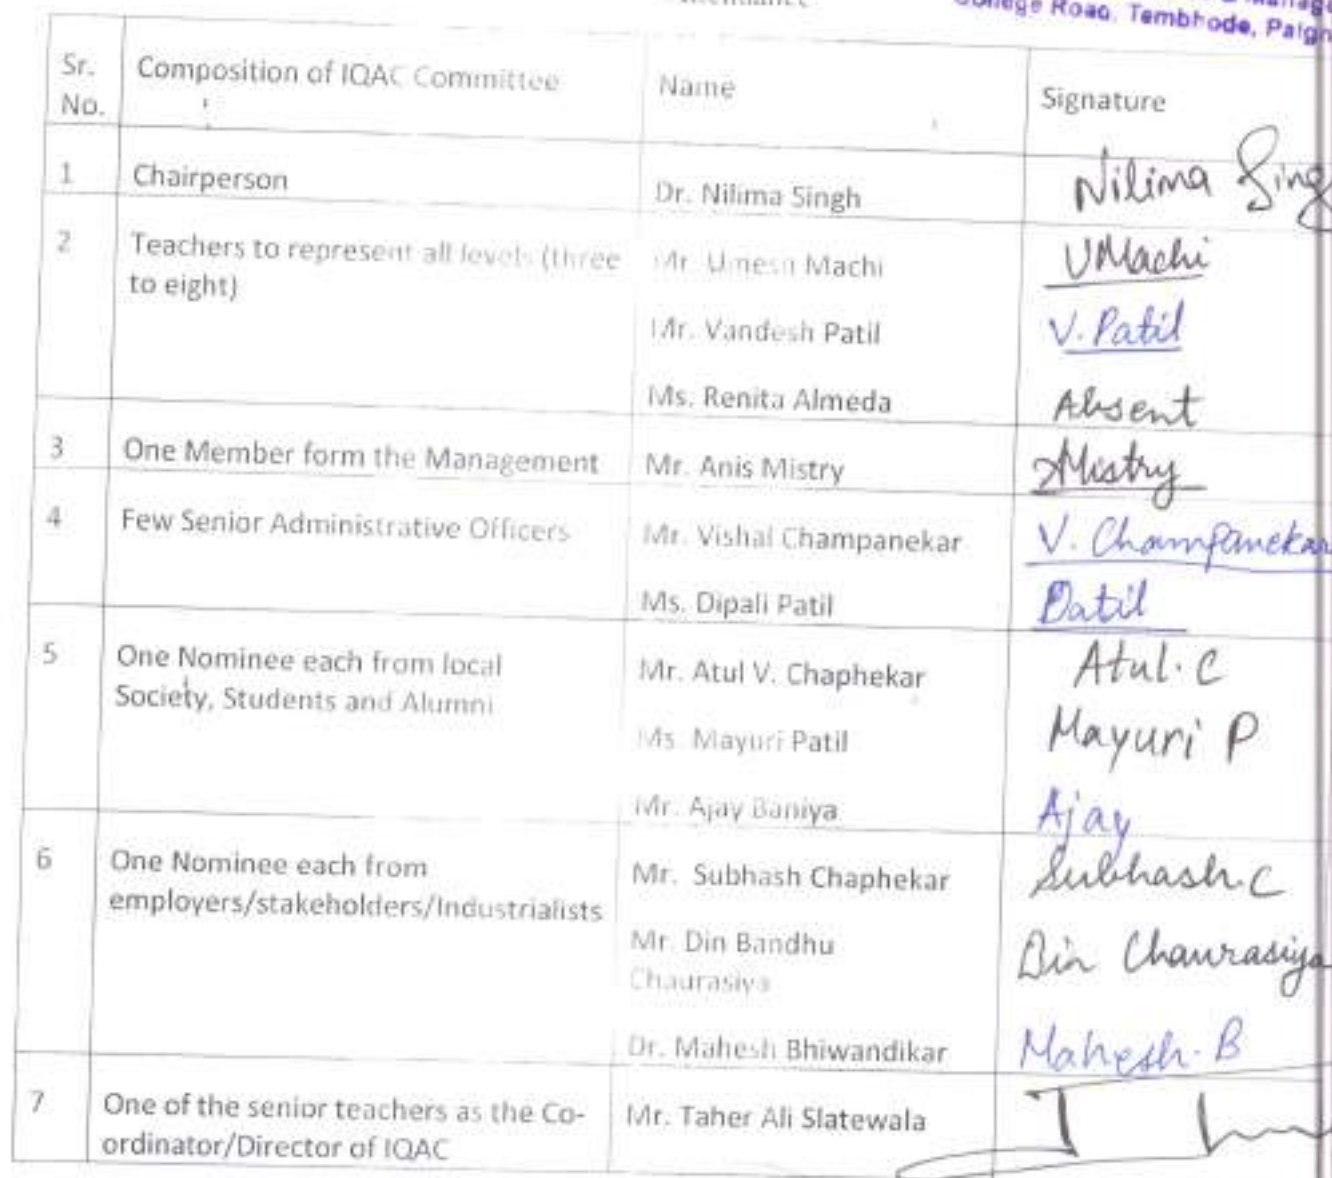 College Road, Tembhode, Palgh
Sr. No. Composition of IQAC Committee Name Signature
1 Chairperson Dr. Nilima Singh Nilima Sing
2 Teachers to represent all levels (three to eight) Mr. Umesh Machi UMachi
Mr. Vandesh Patil V. Patil
Ms. Renita Almeda Absent
3 One Member form the Management Mr. Anis Mistry AMistry
4 Few Senior Administrative Officers Mr. Vishal Champanekar V. Champanekar
Ms. Dipali Patil DPatil
5 One Nominee each from local Society, Students and Alumni Mr. Atul V. Chaphekar Atul. C
Ms. Mayuri Patil Mayuri P
Mr. Ajay Baniya Ajay
6 One Nominee each from employers/stakeholders/Industrialists Mr. Subhash Chaphekar Subhash.C
Mr. Din Bandhu Chaurasiya Din Chaurasiya
Dr. Mahesh Bhiwandikar Mahesh. B
7 One of the senior teachers as the Co-ordinator/Director of IQAC Mr. Taher Ali Slatewala